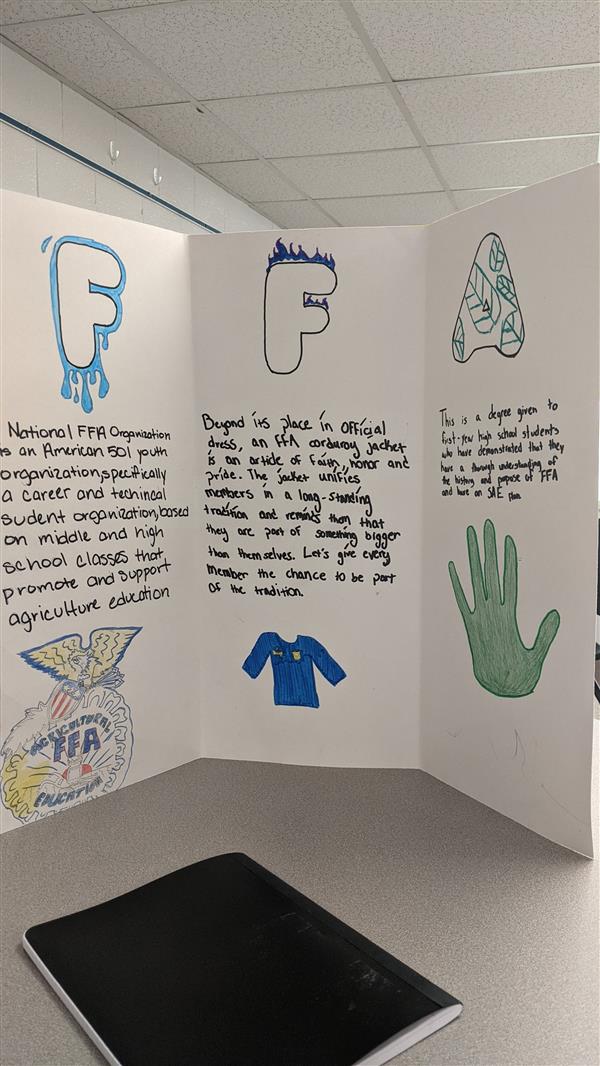 F
National FFA Organization
is an American 501 youth
organization, specifically
a career and techincal
sudent organization, based
on middle and high
school classes that
promote and support
agriculture education
AGRICULTURAL
FFA
EDUCATION
F
Beyond its place in OFFicial
dress, an FFA corduroy jacket
is an article of faith, honor and
pride. The jacket unifies
members in a long-standing
tradition and reminds them that
they are part of something bigger
than themselves. Let's give every
member the chance to be part
Of the tradition.
A
This is a degree given to
first-year high school students
who have demonstrated that they
have a thorough understanding of
the history and purpose of FFA
and have an SAE plan